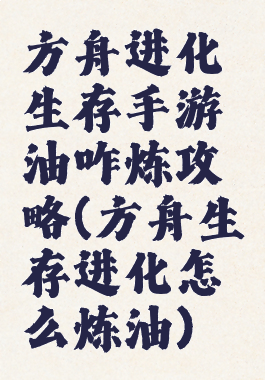 方舟进化
生存手游
油咋炼攻
略(方舟生
存进化怎
么炼油)